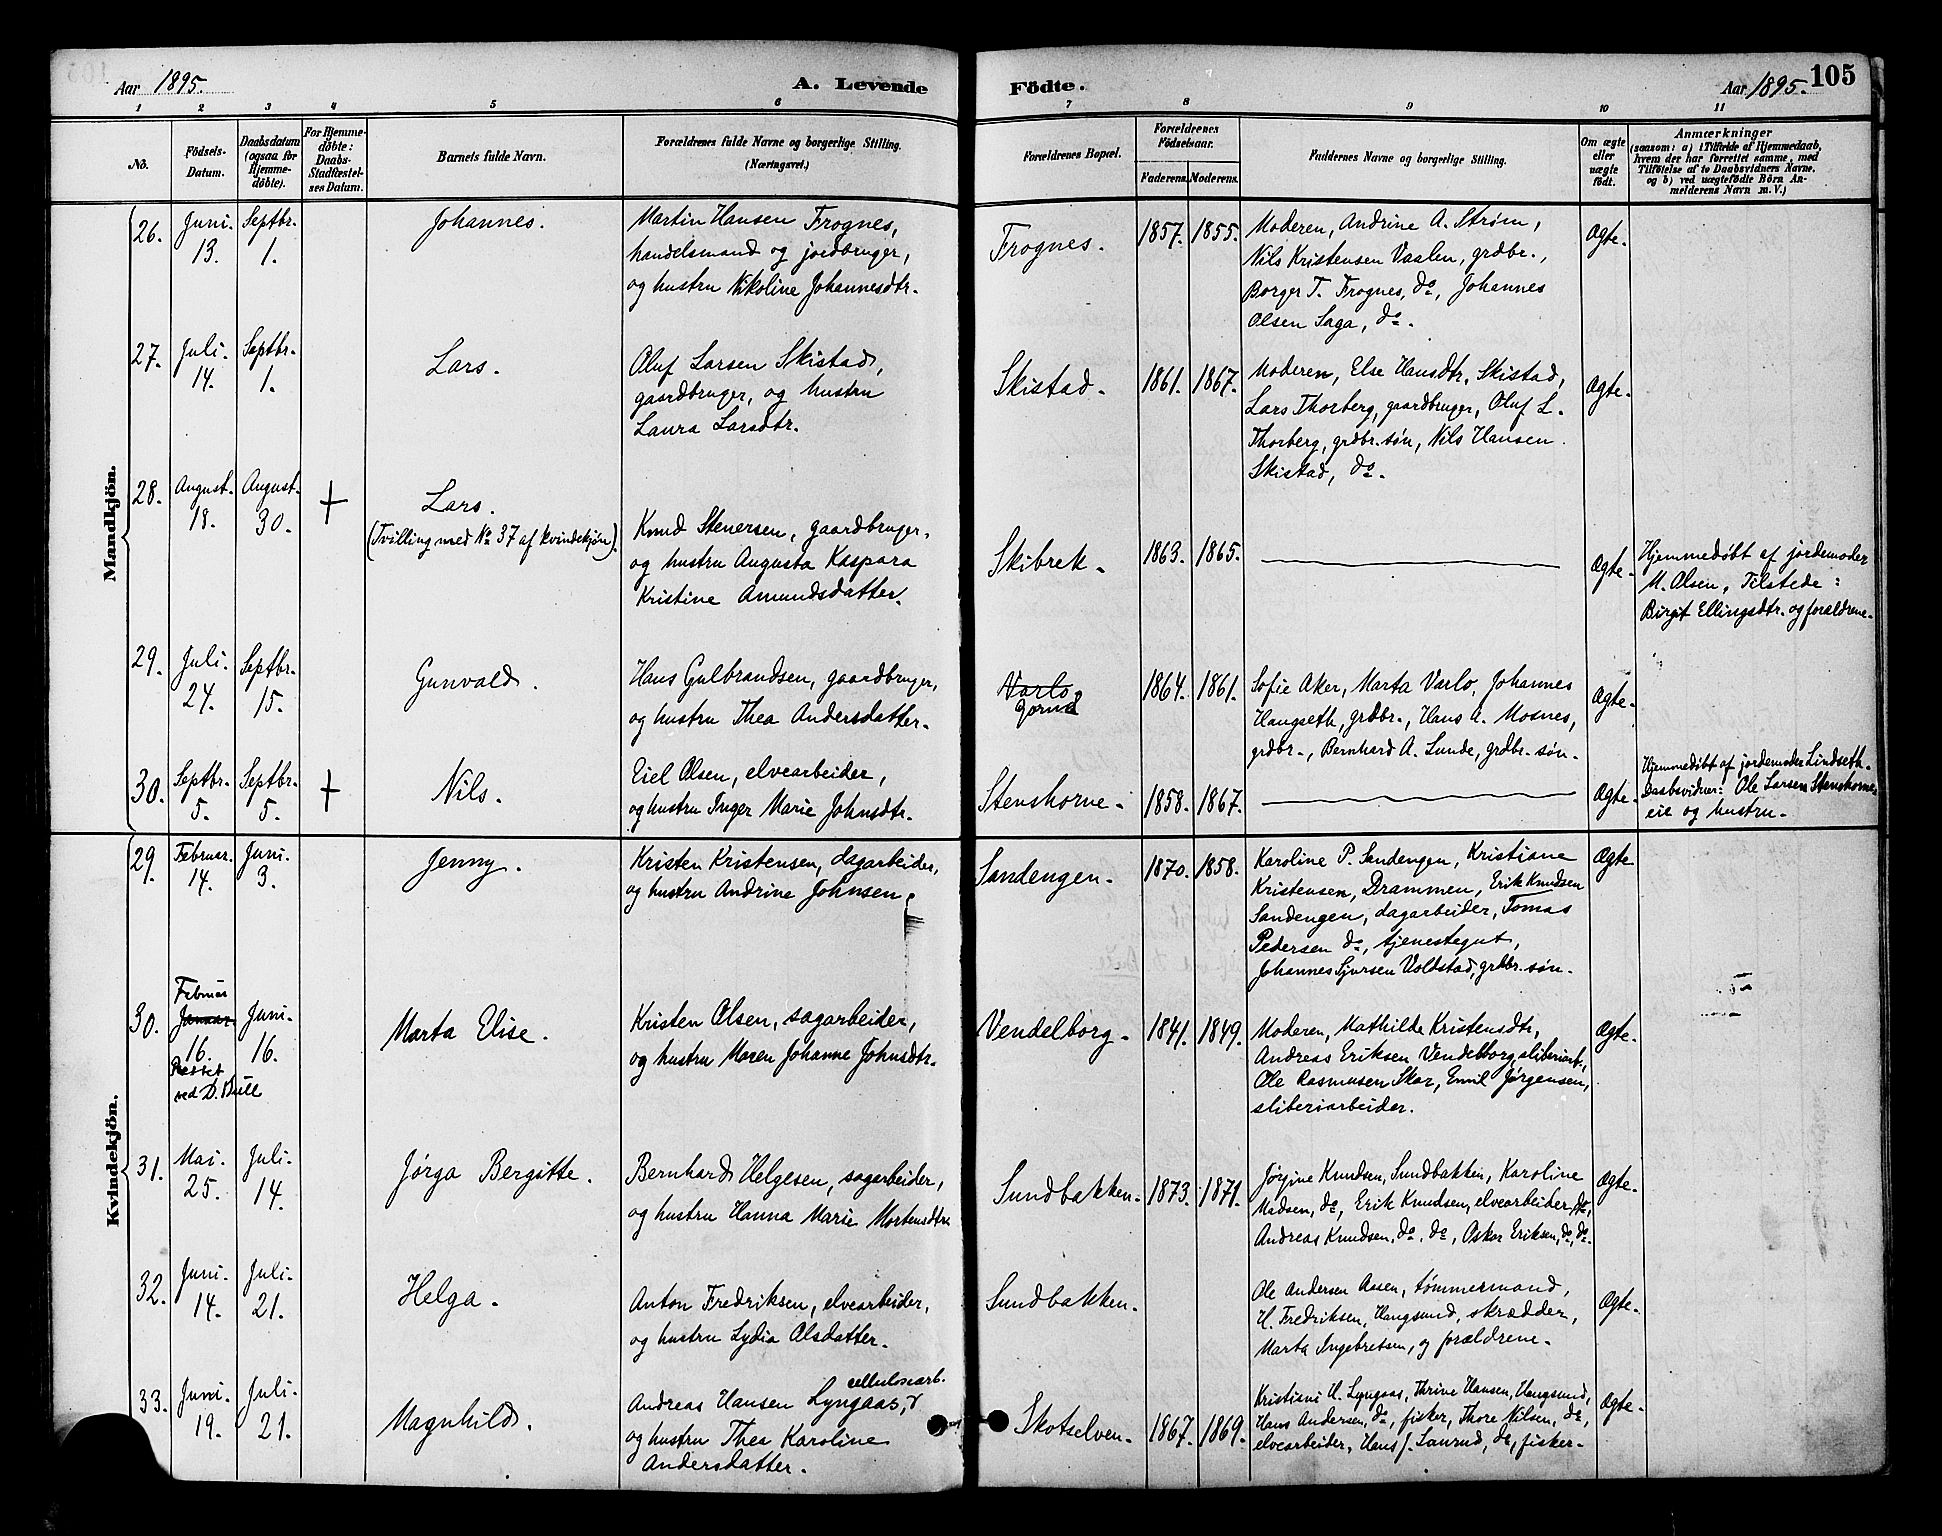 Aar 1895. A. Levende Födte. Aar 1895. 105
1 2 3 4 5 6 7 8 9 10 11
No. Födsels-Datum. Daabsdatum (ogsaa for Hjemme-döbte). For Hjemme-döbte: Daabs-Stadfæstel-ses Datum. Barnets fulde Navn. Forældrenes fulde Navne og borgerlige Stilling. (Næringsvei.) Forældrenes Bopæl. Forældrenes Födselsaar. Faderens. Moderens. Faddernes Navne og borgerlige Stilling. Om ægte eller uægte födt. Anmærkninger (saasom: a) i Tilfælde af Hjemmedaab, hvem der har forrettet samme, med Tilföielse af to Daabsvidners Navne, og b) ved uægtefödte Börn An-melderens Navn m. V.)
Mandkjön.
26. Juni. Septbr. Johannes. Martin Hansen Frognes, Frognes. 1857. 1855. Moderen, Andrine A. Strøm, Ægte.
13. 1. handelsmand og jordbruger, Nils Kristensen Vaalen, grdbr.,
og hustru Nikoline Johannesdtr. Borger T. Frognes, do, Johannes
Olsen Saga, do.
27. Juli. Septbr. Lars. Oluf Larsen Skistad, Skistad. 1861. 1867. Moderen, Else Hansdtr. Skistad, Ægte.
14. 1. gaardbruger, og hustru Lars Thorberg, gaardbruger, Oluf L.
Laura Larsdtr. Thorberg, grdbr. søn, Nils Hansen
Skistad, do.
28. August. August. + Lars.
18. 30. (Tvilling med No 37 af kvindekjøn). Knud Stenersen, gaardbruger, Skibrek. 1863. 1865. Ægte. Hjemmedøbt af jordemoder
og hustru Augusta Kaspara M. Olsen, Tilstede:
Kristine Amundsdatter. Birgit Ellingsdtr. og forældrene.
29. Juli. Septbr. Gunvald. Hans Gulbrandsen, gaardbruger, Varlo 1864. 1861. Sofie Aker, Marta Varlo, Johannes Ægte.
24. 15. og hustru Thea Andersdatter. Haugseth, grdbr., Hans A. Mosnes,
grdbr., Bernhard A. Lunde, grdbr. søn.
30. Septbr. Septbr. + Nils. Eiel Olsen, elvearbeider, Stenshorne. 1858. 1867. Ægte. Hjemmedøbt af jordemoder Lindseth.
5. 5. og hustru Inger Marie Johnsdtr. Daabsvidner: Ole Larsen Stenshorne-
eie og hustru.
Kvindekjön.
29. Februar. Juni. Jenny. Kristen Kristensen, dagarbeider, Sandengen. 1870. 1858. Karoline P. Sandengen, Kristiane Ægte
14. 3. og hustru Andrine Johnsen. Kristensen, Drammen, Erik Knudsen
Sandengen, dagarbeider, Tomas
Pedersen do, tjenestegut,
Johannes Sjursen Voldstad, grdbr. søn.
Februar
30. Januar Juni. Marta Elise. Kristen Olsen, sagarbeider, Vendelborg. 1841. 1849. Moderen, Mathilde Kristensdtr, Ægte.
16. 16. og hustru Maren Johanne Johnsdtr. Andreas Eriksen Vendelborg, sliberiarb.,
Rettet Ole Rasmusen Skar, Emil Jørgensen,
ved D. Bull sliberiarbeider.
31. Mai. Juli. Jørga Bergitte. Bernhard Helgesen, sagarbeider, Sundbakken. 1873. 1871. Jørgine Knudsen, Sundbakken, Karoline Ægte.
25. 14. og hustru Hanna Marie Mortensdtr Madsen, do, Erik Knudsen, elvearbeider, do,
Andreas Knudsen, do, do, Oskar Eriksen, do, do.
32. Juni. Juli. Helga. Anton Fredriksen, elvearbeider, Sundbakken. Ole Andersen Aasen, tømmermand, Ægte.
14. 21. og hustru Lydia Olsdatter. H. Fredriksen, Haugsund, skrædder,
Marta Ingebretsen, og forældrene.
celluloserarb.
33. Juni. Juli. Magnhild. Andreas Hansen Lyngaas, Skotselven. 1867. 1869. Kristiane H. Lyngaas, Thrine Hansen, Haugsund, Ægte.
19. 21. og hustru Thea Karoline Hans Andersen, do, fisker, Thore Nilsen, do,
Andersdatter. elvearbeider, Hans J. Laurud, do, fisker.